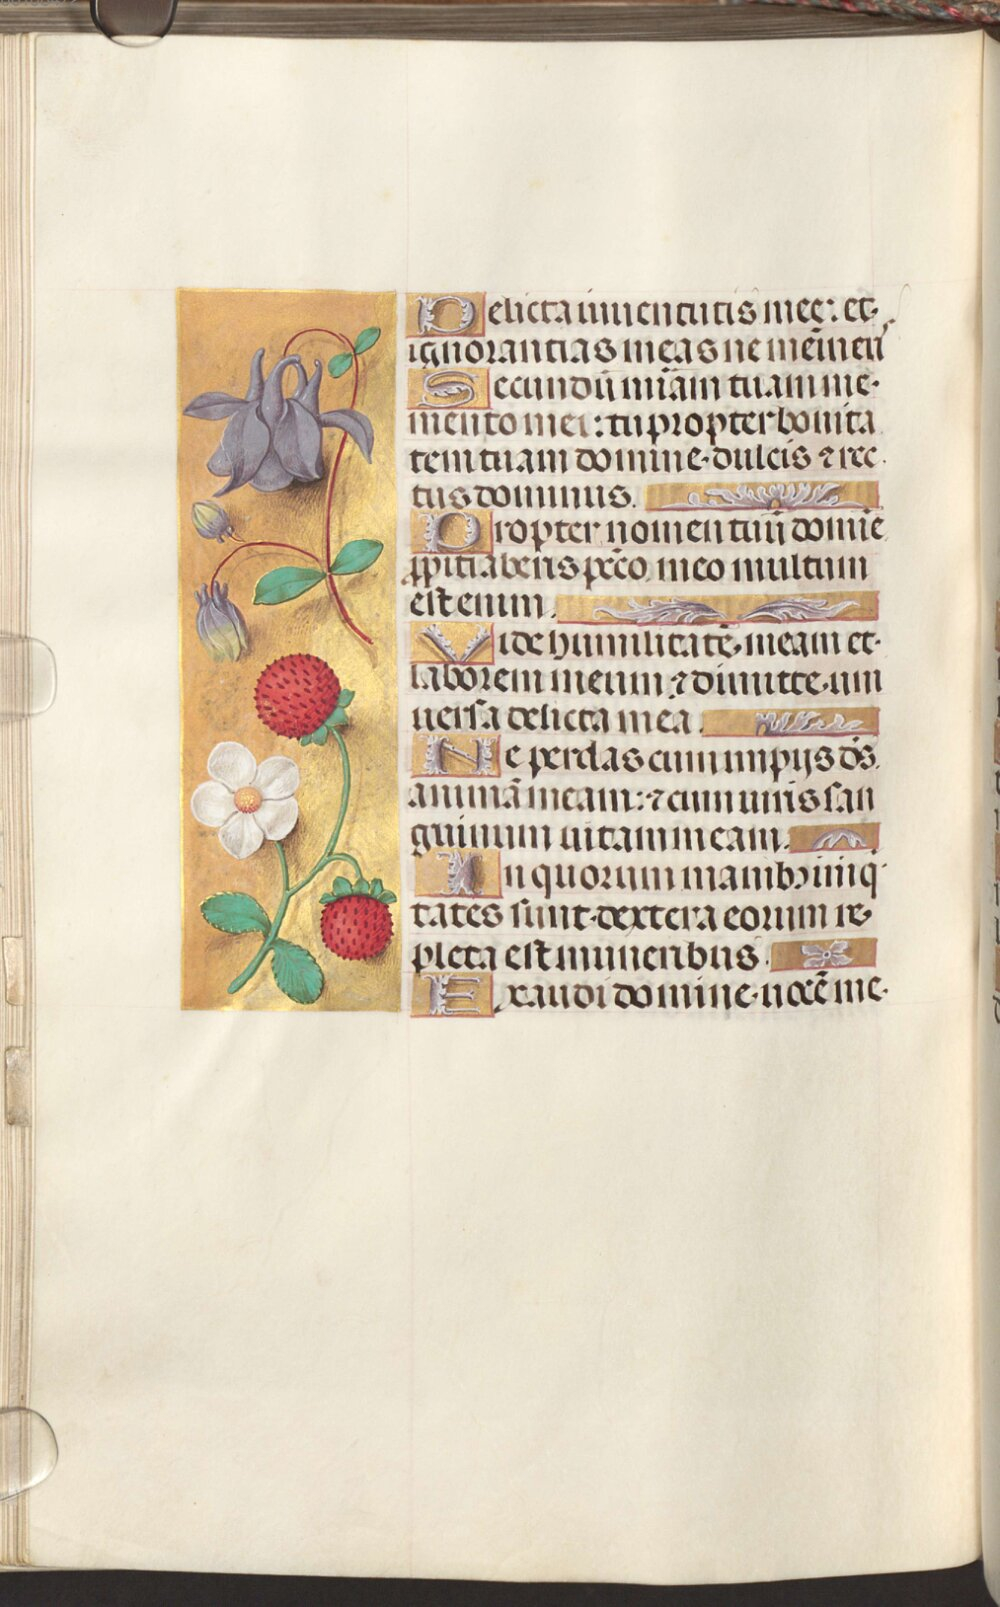 Delicta iuuentutis mee: et
ignorantias meas ne memineꝛ̄
Secundū mīam tuam me-
mento mei: tu propter bonita
tem tuam domine. dulcis ⁊ rec
tus dominus.
Propter nomen tuū domīe
ꝓpitiaberis pcc̄o meo multum
est enim.
Vide humilitatē meam et
laborem meum ⁊ dimitte uni
uersa delicta mea.
Ne perdas cum impijs ds̄
animā meam: ⁊ cum uiris san
guinum uitam meam.
In quorum manibꝫ iniq
tates sunt dextera eorum re
pleta est muneribus.
Exaudi domine uocē me